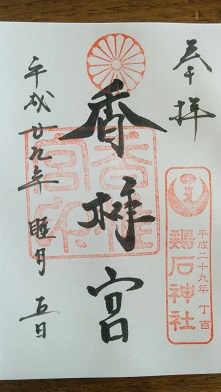 奉拝
平成二十九年 丁酉
鶏石神社
香椎宮
香椎
宮印
平成廿九年 睦月 五日